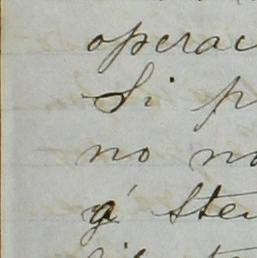 operac
Si p
no no
á Ste